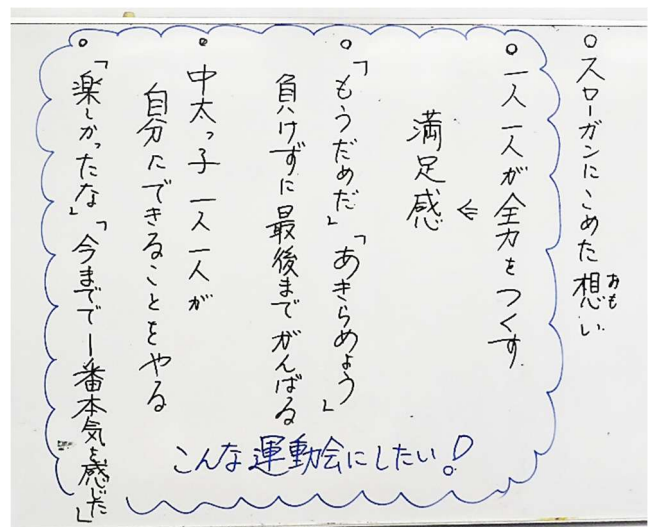 ○スローガンにこめた想い
おも
○一人一人が全力をつくす
⇐満足感
○「もうだめだ」「あきらめよう」
負けずに最後までがんばる
○中太っ子一人一人が
自分にできることをやる
○「楽しかったな」「今までで一番本気を感じた」
こんな運動会にしたい!